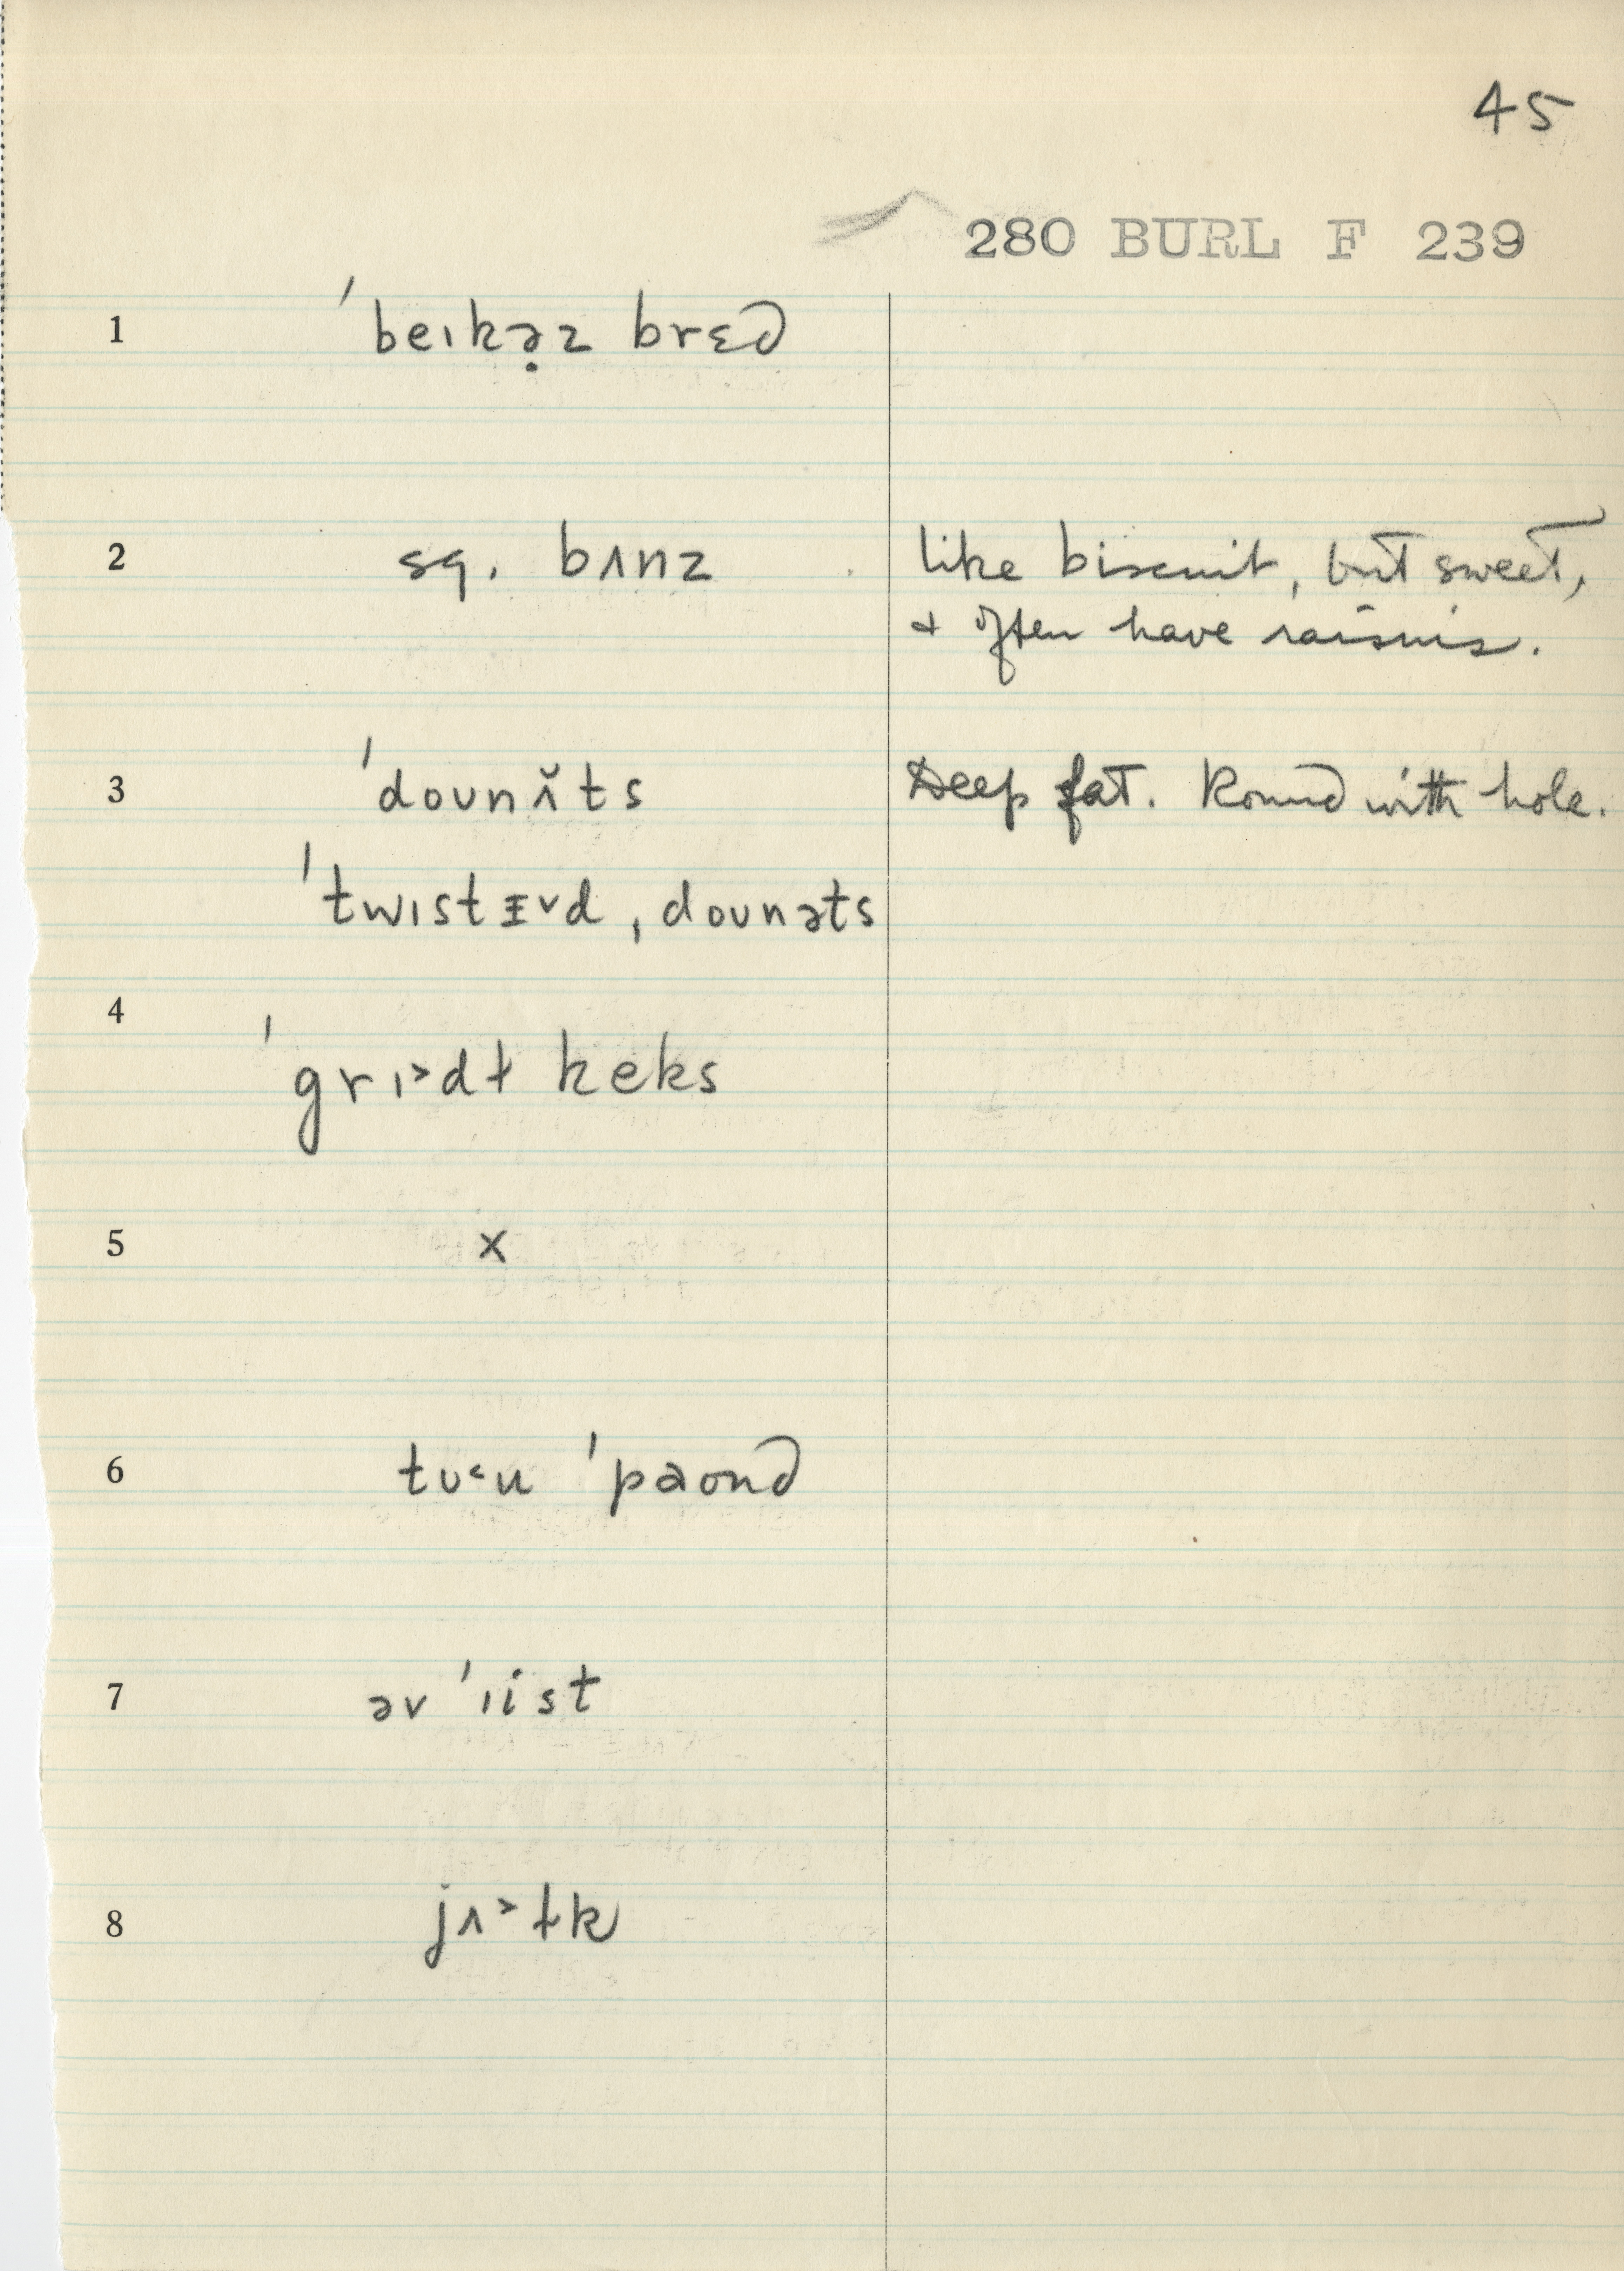 45
280 BURL F 239
1 ˈbeɪkə̣z brɛd
2 sq. bʌnz like biscuit, but sweet,
+ often have raisins.
3 ˈdoʊnʌ̆ts Deep fat. Round with hole.
ˈtwɪstᵻ˅d ˌdoʊnəts
4 ˈgrɪ˃dɫ keks
5 x
6 tʊ˂u ˈpaond
7 əv ˈɪist
8 jʌ˃ɫk